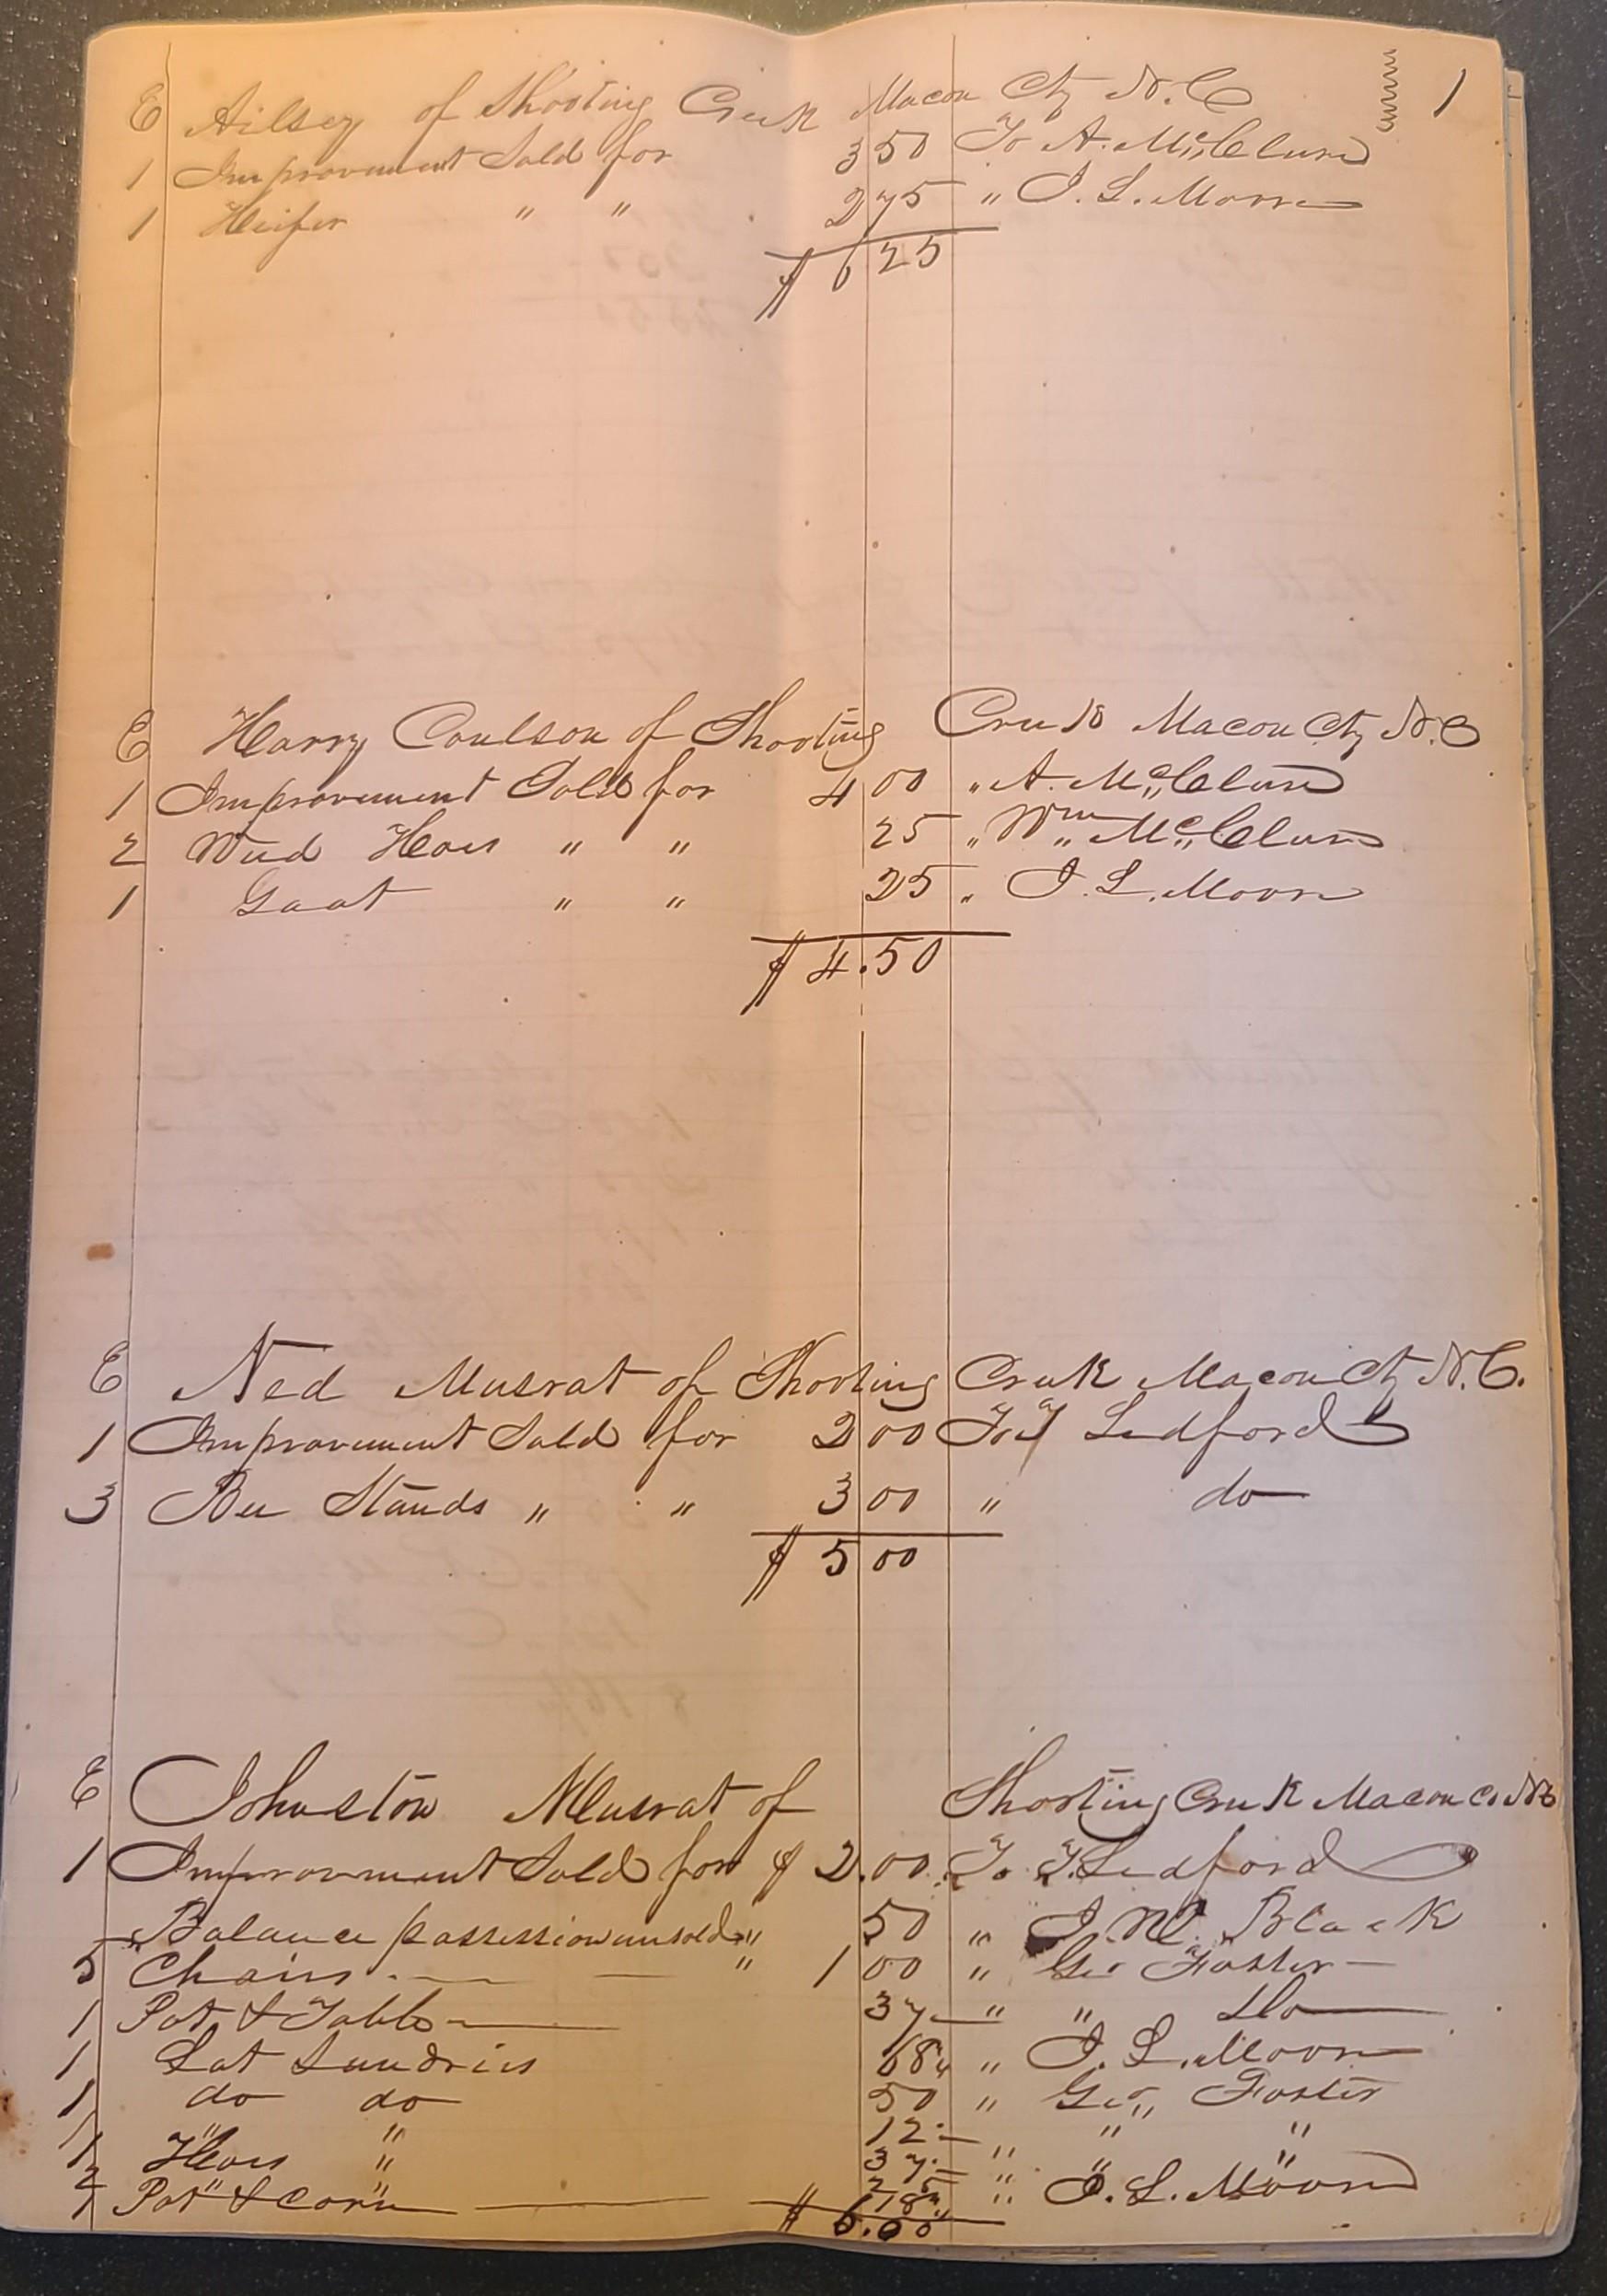 1
E Ailsey of Shooting Creek Macon Cty N.C
1 Improvement Sold for 3 50 To A. McClure
1 Heifer " " 2 75 " J. L. Moore
$ 6 25
E Harry Coulson of Shooting Creek Macon Cty N.C
1 Improvement Sold for 4 00 " A. McClure
2 Weed Hoes " " 25 " Wm McClure
1 Goat " " 25 " J. L. Moore
$ 4.50
E Ned Musrat of Shooting Creek Macon Cty N.C.
1 Improvement Sold for 2 00 To T Ledford
3 Bee Stands " " 3 00 " do
$ 5 00
E Johnston Musrat of Shooting Creek Macon Co NC
1 Improvment Sold for $ 2.00 To T. Ledford
Balance possession unsold " 50 " J. W. Black
5 Chairs " 1 00 " Geo Foster
1 Pot & Table 37 " " Do
1 Lot Sundries 68 " J. L. Moore
1 do do 50 " Geo Foster
1 " " 12 " " "
1 Hoes " 37 " " "
2 " 25 "
1 Pot & Corn 18 " J. L. Moore
$ 6.00